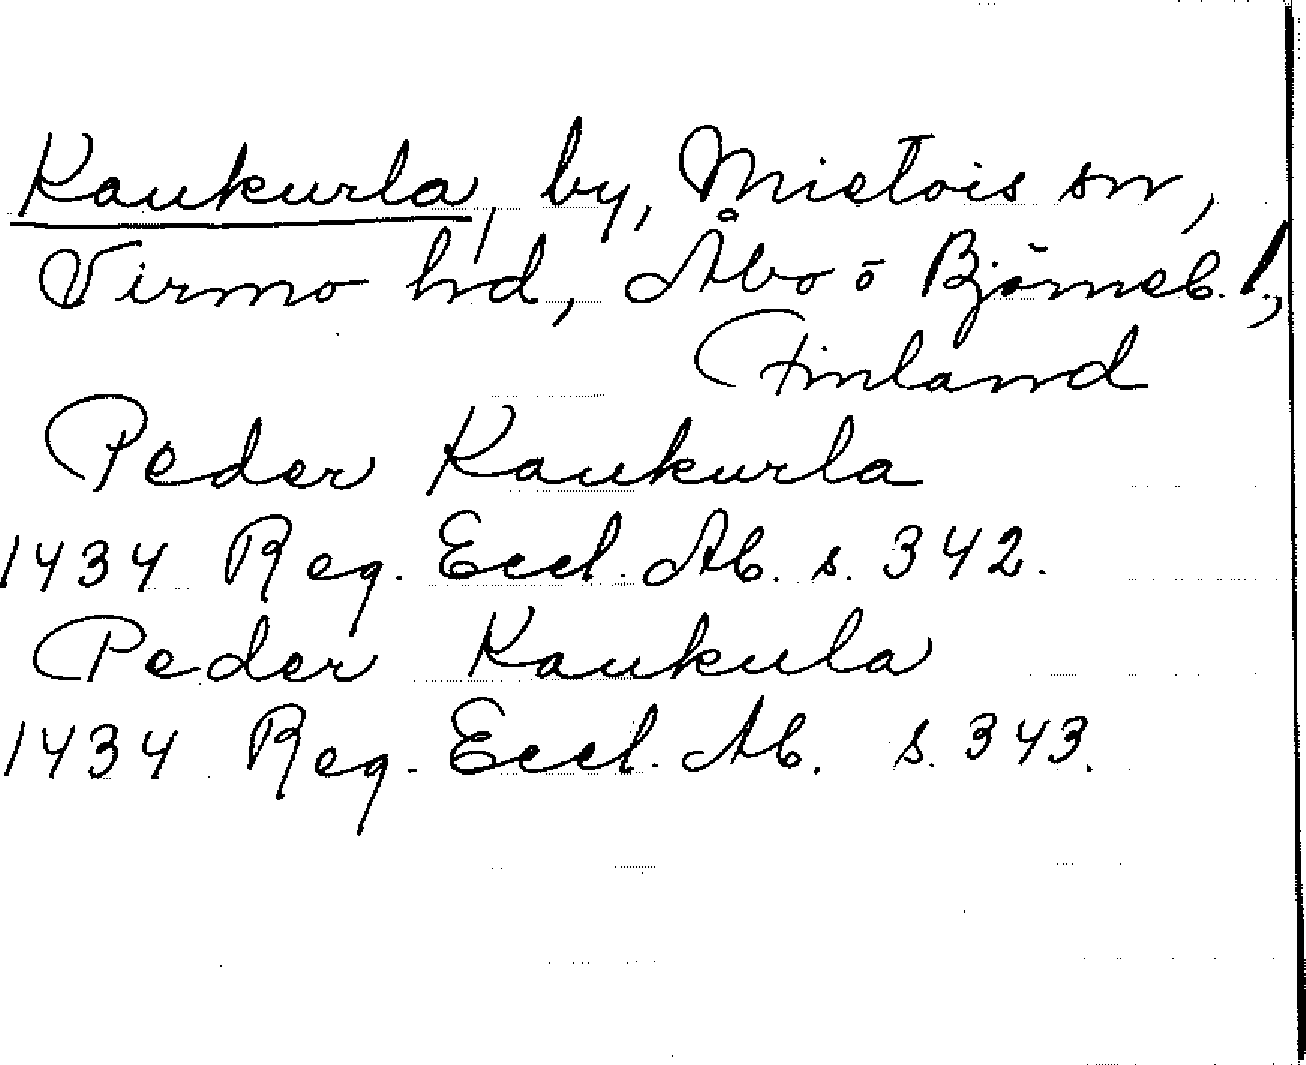 Kaukurla, by, Mietois sn,
Virmo hd, Åbo o Björneb. l.,
Finland
Peder Kaukurla
1434 Reg. Eccl. Ab. s. 342.
Peder Kaukula
1434 Reg. Eccl. Ab. s. 343.